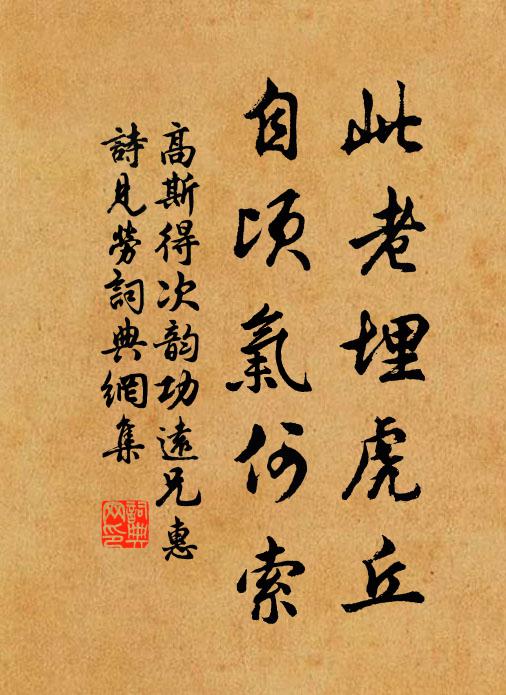 此老埋虎丘
自頃氣何索
高斯得次韵功遠兄惠
詩見勞詞典網集
詞典網印